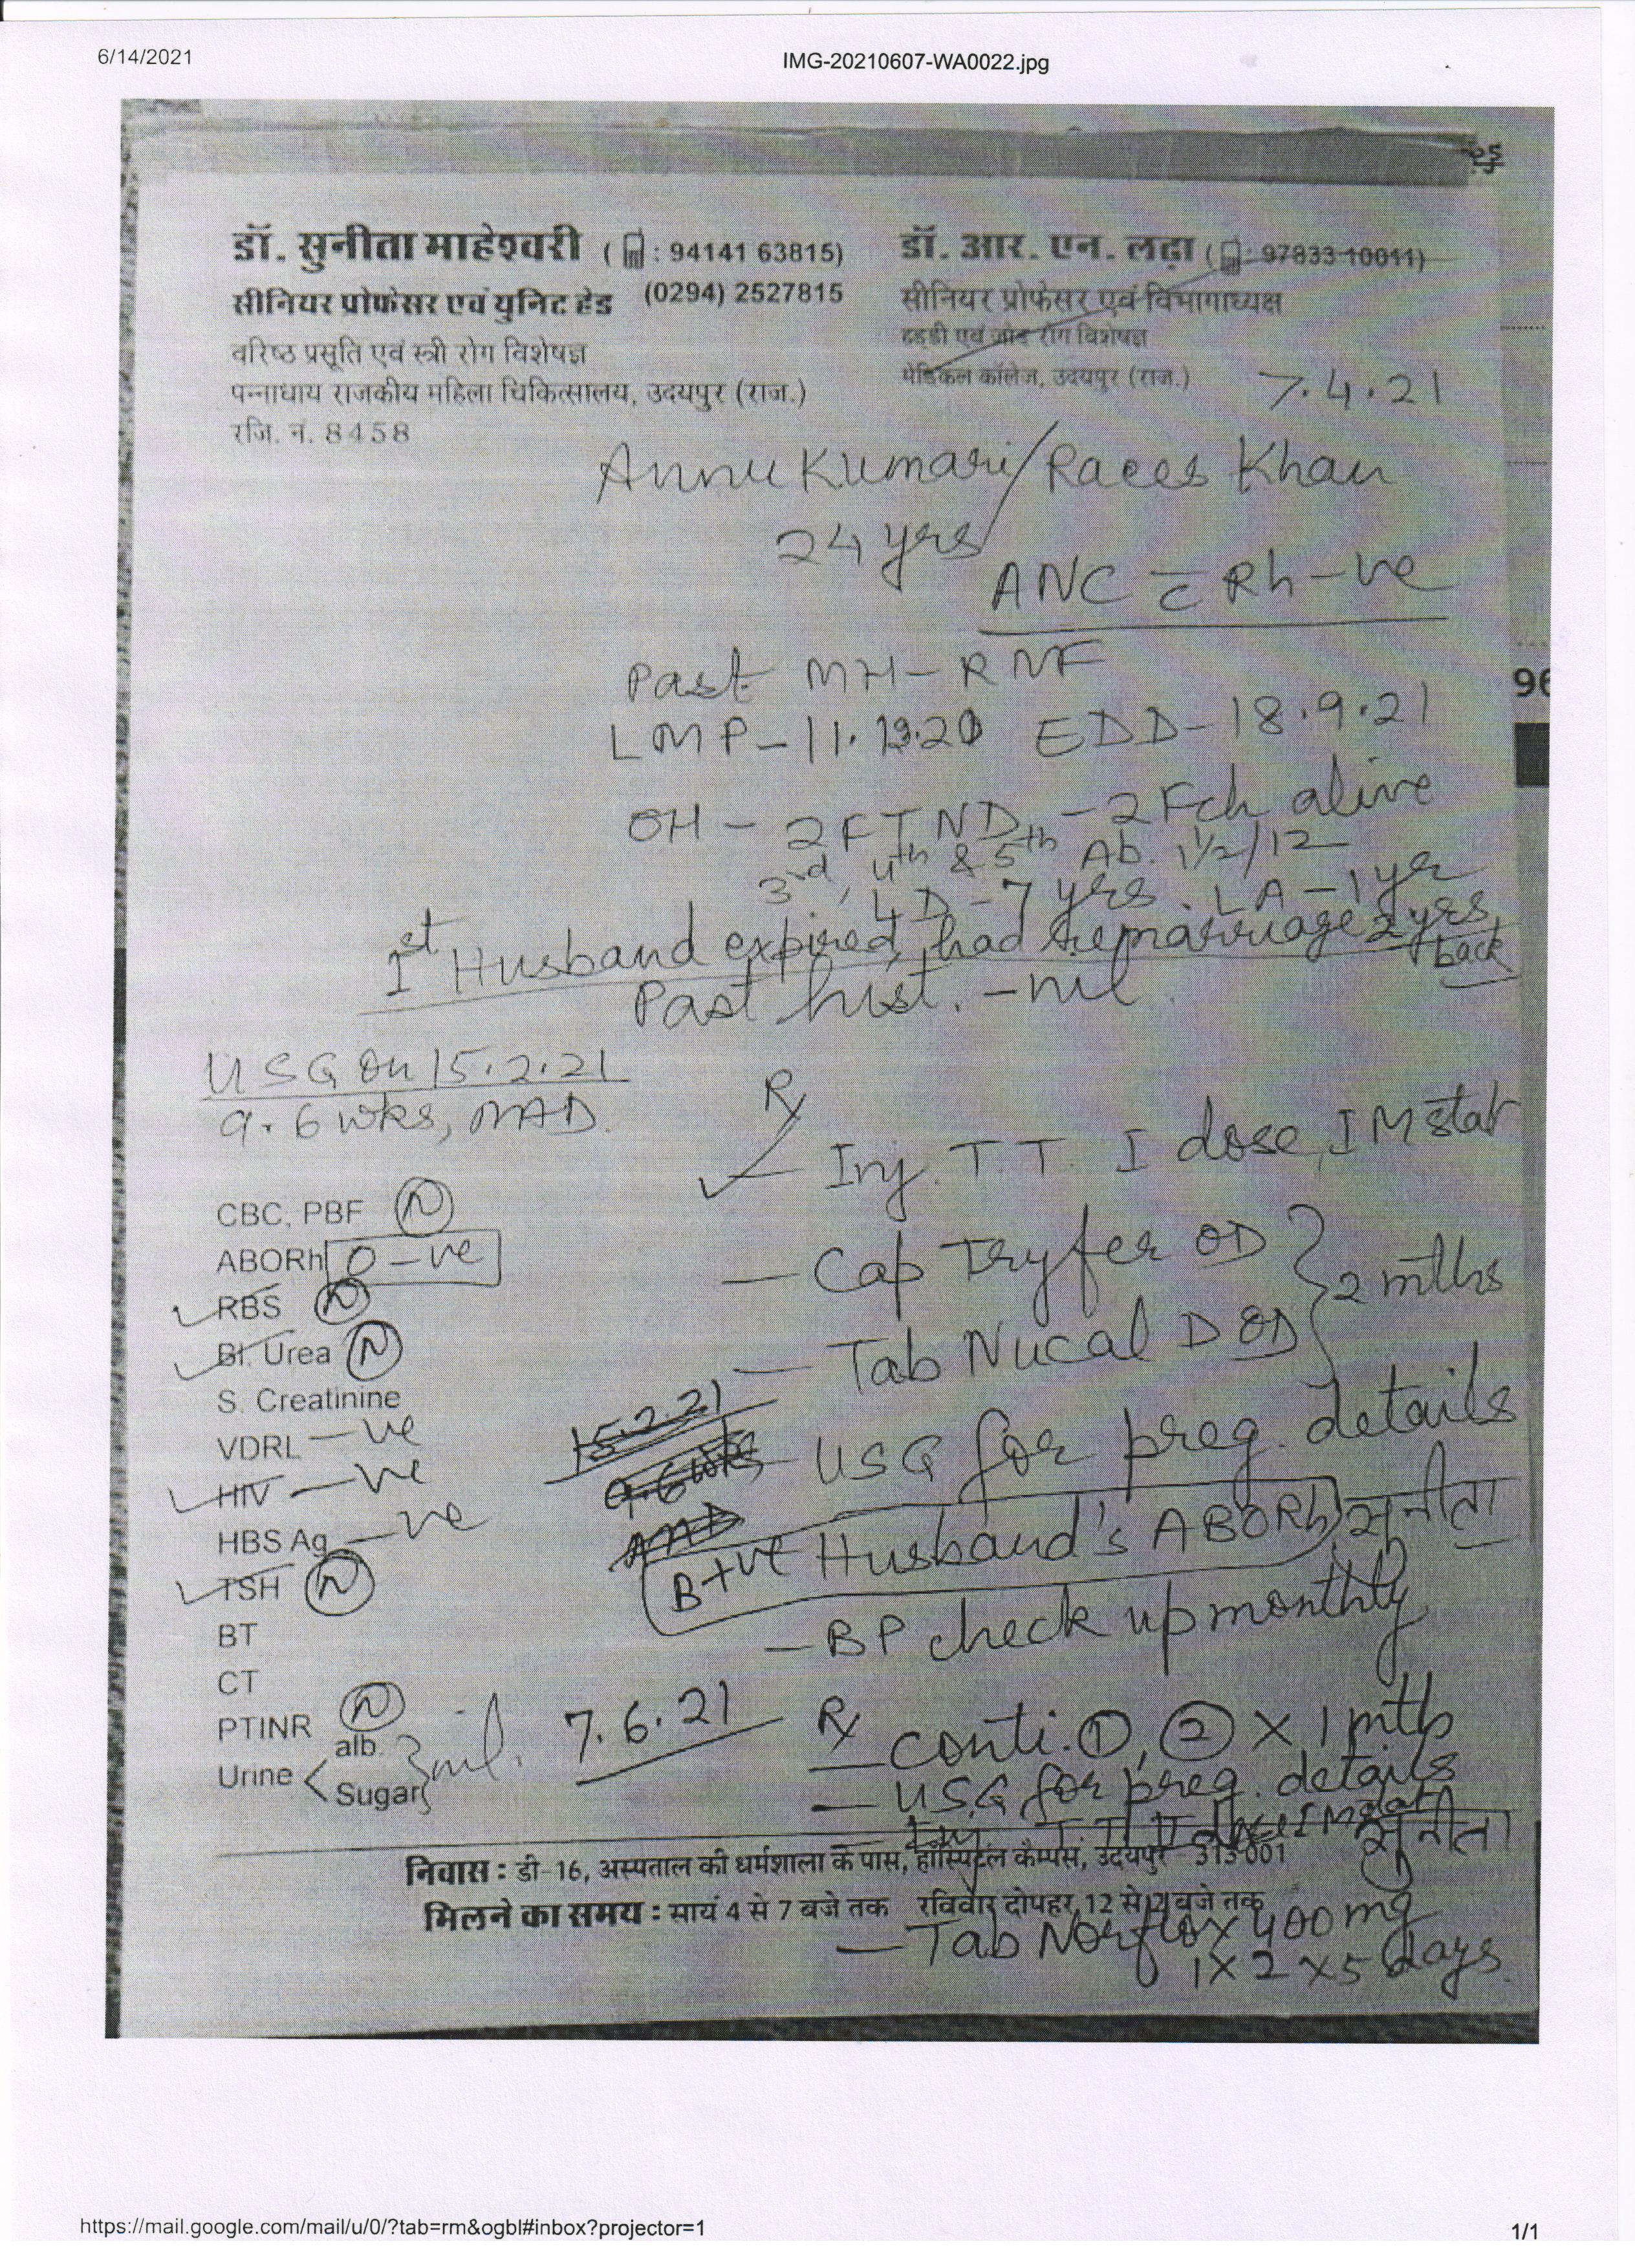 6/14/2021 IMG-20210607-WA0022.jpg
डॉ. सुनीता माहेश्वरी ( : 94141 63815)
सीनियर प्रोफेसर एवं युनिट हेड (0294) 2527815
वरिष्ठ प्रसूति एवं स्त्री रोग विशेषज्ञ
पन्नाधाय राजकीय महिला चिकित्सालय, उदयपुर (राज.)
रजि. न. 8458
डॉ. आर. एन. लढ़ा ( : 97833 10011)
सीनियर प्रोफेसर एवं विभागाध्यक्ष
हड्डी एवं जोड रोग विशेषज्ञ
मेडिकल कॉलेज, उदयपुर (राज.)
7.4.21
Annu Kumari/Raees Khan
24 yrs
ANC c̄ Rh-ve
Past MH-RNF
LMP-11. .20 EDD-18.9.21
OH - 2FTND - 2Fch alive
3rd, 4th & 5th Ab. 1½/12
LD-7 yrs. LA-1yr
Ist Husband expired, had remarriage 2 yrs back
Past hist. - nil
USG on 15.2.21
9.6 wks, MAD.
CBC, PBF N
ABORh O-ve
RBS N
Bl. Urea N
S. Creatinine
VDRL -ve
HIV -ve
HBS Ag -ve
TSH N
BT
CT
PTINR N
Urine < alb. Sugar } nil.
Rx
- Inj. T.T. I dose IM stat
- Cap Tryfer OD } 2 mths
- Tab Nucal D OD
15.2.21
9.6 wks
MAD
- USG for preg. details
B+ve Husband's ABORh सुनीता
- BP check up monthly
7.6.21 Rx
- conti. ①, ② x 1 mth
- USG for preg. details
- Inj. T.T. II dose IM stat
सुनीता
निवास : डी-16, अस्पताल की धर्मशाला के पास, हॉस्पिटल कैम्पस, उदयपुर - 313 001
मिलने का समय : सायं 4 से 7 बजे तक रविवार दोपहर 12 से 2 बजे तक
- Tab Norflox 400 mg
1 x 2 x 5 days
https://mail.google.com/mail/u/0/?tab=rm&ogbl#inbox?projector=1 1/1
96